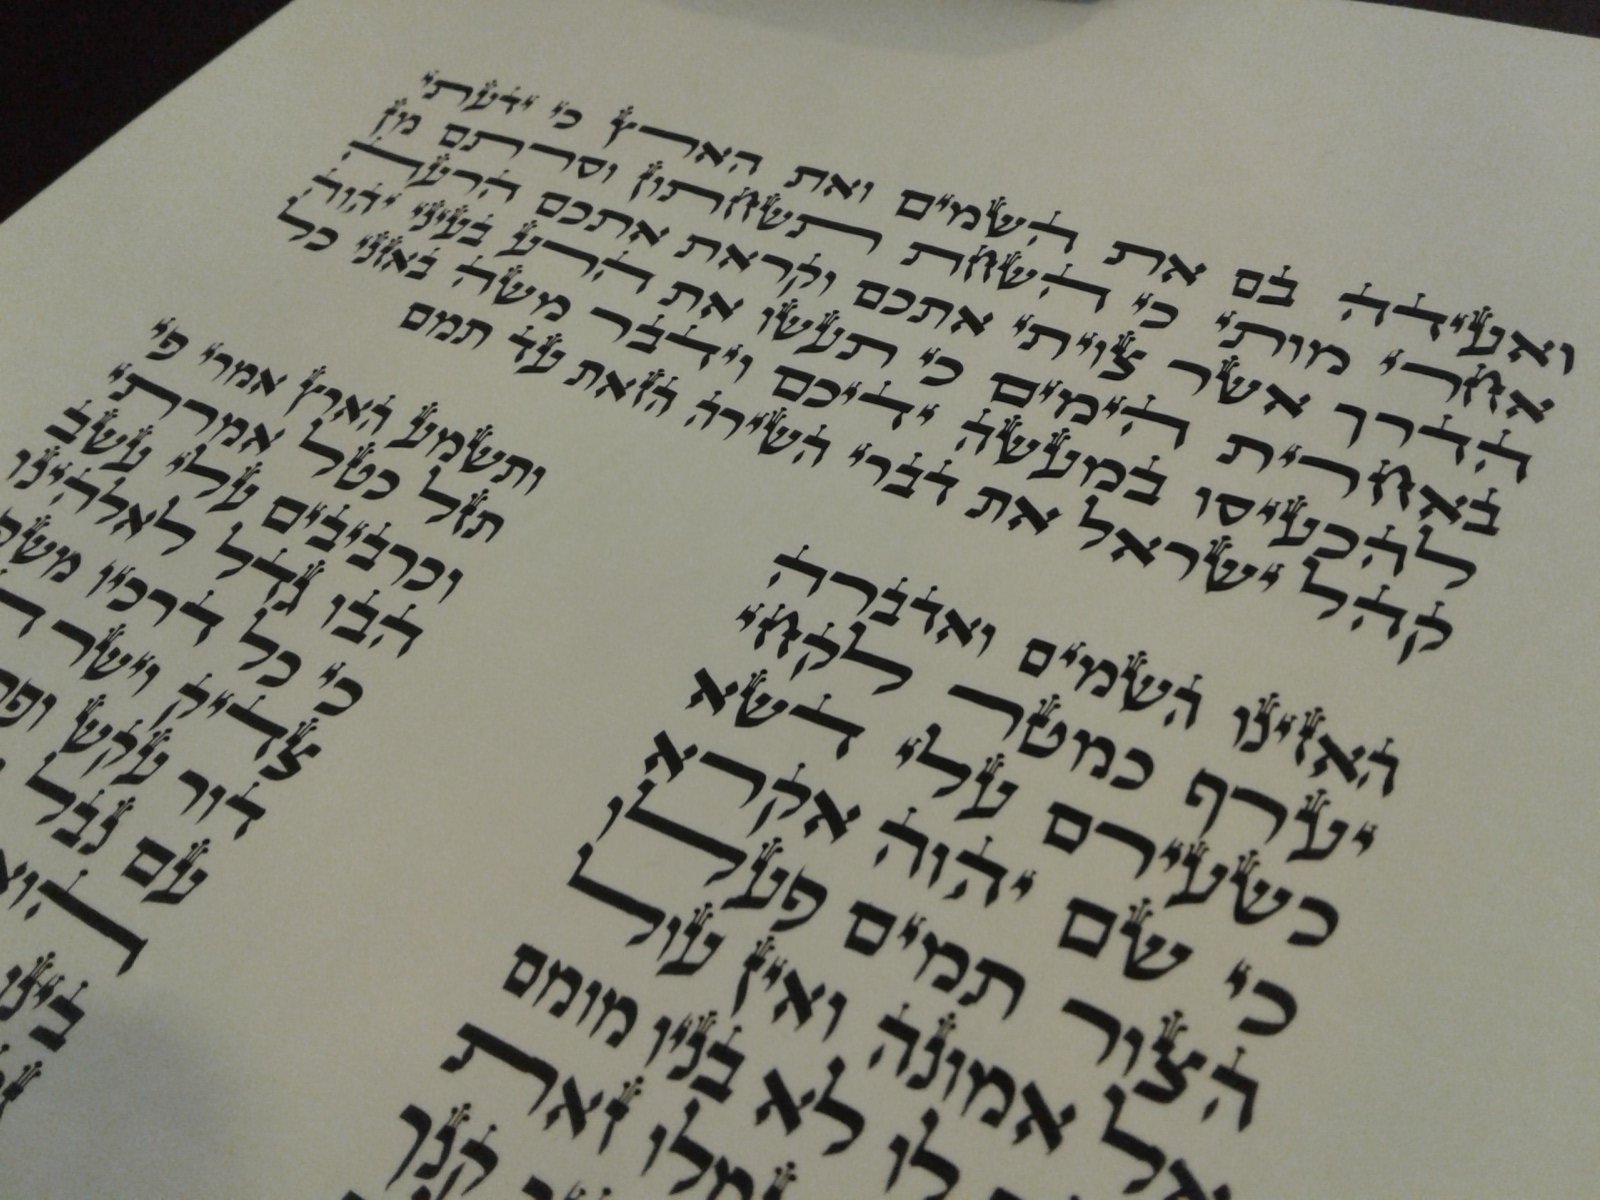 ואעידה בם את השמים ואת הארץ כי ידעתי
אחרי מותי כי השחת תשחתון וסרתם מן
הדרך אשר צויתי אתכם וקראת אתכם הרעה
באחרית הימים כי תעשו את הרע בעיני יהוה
להכעיסו במעשה ידיכם וידבר משה באזני כל
קהל ישראל את דברי השירה הזאת עד תמם
האזינו השמים ואדברה ותשמע הארץ אמרי פי
יערף כמטר לקחי תזל כטל אמרתי
כשעירם עלי דשא וכרביבים עלי עשב
כי שם יהוה אקרא הבו גדל לאלהינו
הצור תמים פעלו כי כל דרכיו
אל אמונה ואין עול צדיק וישר
לו לא בניו מומם דור עקש
זאת עם נבל
קנך